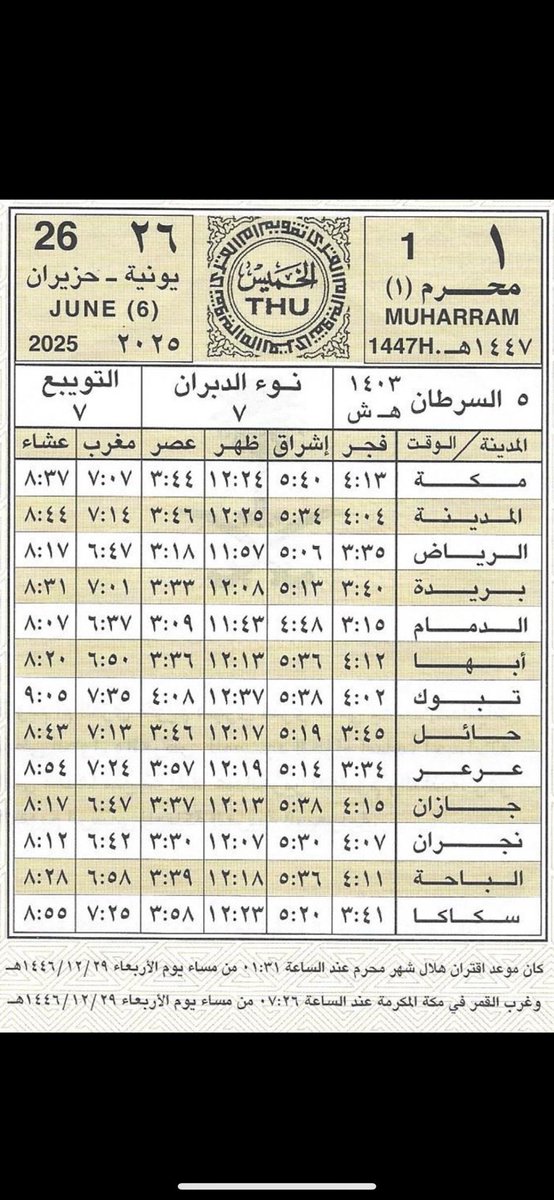 ١ 1
محرم (١)
MUHARRAM
١٤٤٧هـ 1447H.
الخميس
THU
26 ٢٦
يونية - حزيران
JUNE (6)
2025 ٢٠٢٥
٥ السرطان ١٤٠٣ هـ ش
نوء الدبران
٧
التويبع
٧
المدينة / الوقت فجر إشراق ظهر عصر مغرب عشاء
مكة ٤:١٣ ٥:٤٠ ١٢:٢٤ ٣:٤٤ ٧:٠٧ ٨:٣٧
المدينة ٤:٠٤ ٥:٣٤ ١٢:٢٥ ٣:٤٦ ٧:١٤ ٨:٤٤
الرياض ٣:٣٥ ٥:٠٦ ١١:٥٧ ٣:١٨ ٦:٤٧ ٨:١٧
بريدة ٣:٤٠ ٥:١٣ ١٢:٠٨ ٣:٣٣ ٧:٠١ ٨:٣١
الدمام ٣:١٥ ٤:٤٨ ١١:٤٣ ٣:٠٩ ٦:٣٧ ٨:٠٧
أبها ٤:١٢ ٥:٣٦ ١٢:١٣ ٣:٣٦ ٦:٥٠ ٨:٢٠
تبوك ٤:٠٢ ٥:٣٨ ١٢:٣٧ ٤:٠٨ ٧:٣٥ ٩:٠٥
حائل ٣:٤٥ ٥:١٩ ١٢:١٧ ٣:٤٦ ٧:١٣ ٨:٤٣
عرعر ٣:٣٤ ٥:١٤ ١٢:١٩ ٣:٥٧ ٧:٢٤ ٨:٥٤
جازان ٤:١٥ ٥:٣٨ ١٢:١٣ ٣:٣٧ ٦:٤٧ ٨:١٧
نجران ٤:٠٧ ٥:٣٠ ١٢:٠٧ ٣:٣٠ ٦:٤٢ ٨:١٢
الباحة ٤:١١ ٥:٣٦ ١٢:١٨ ٣:٣٩ ٦:٥٨ ٨:٢٨
سكاكا ٣:٤١ ٥:٢٠ ١٢:٢٣ ٣:٥٨ ٧:٢٥ ٨:٥٥
كان موعد اقتران هلال شهر محرم عند الساعة ٠١:٣١ من مساء يوم الأربعاء ١٤٤٦/١٢/٢٩هـ
وغرب القمر في مكة المكرمة عند الساعة ٠٧:٢٦ من مساء يوم الأربعاء ١٤٤٦/١٢/٢٩هـ